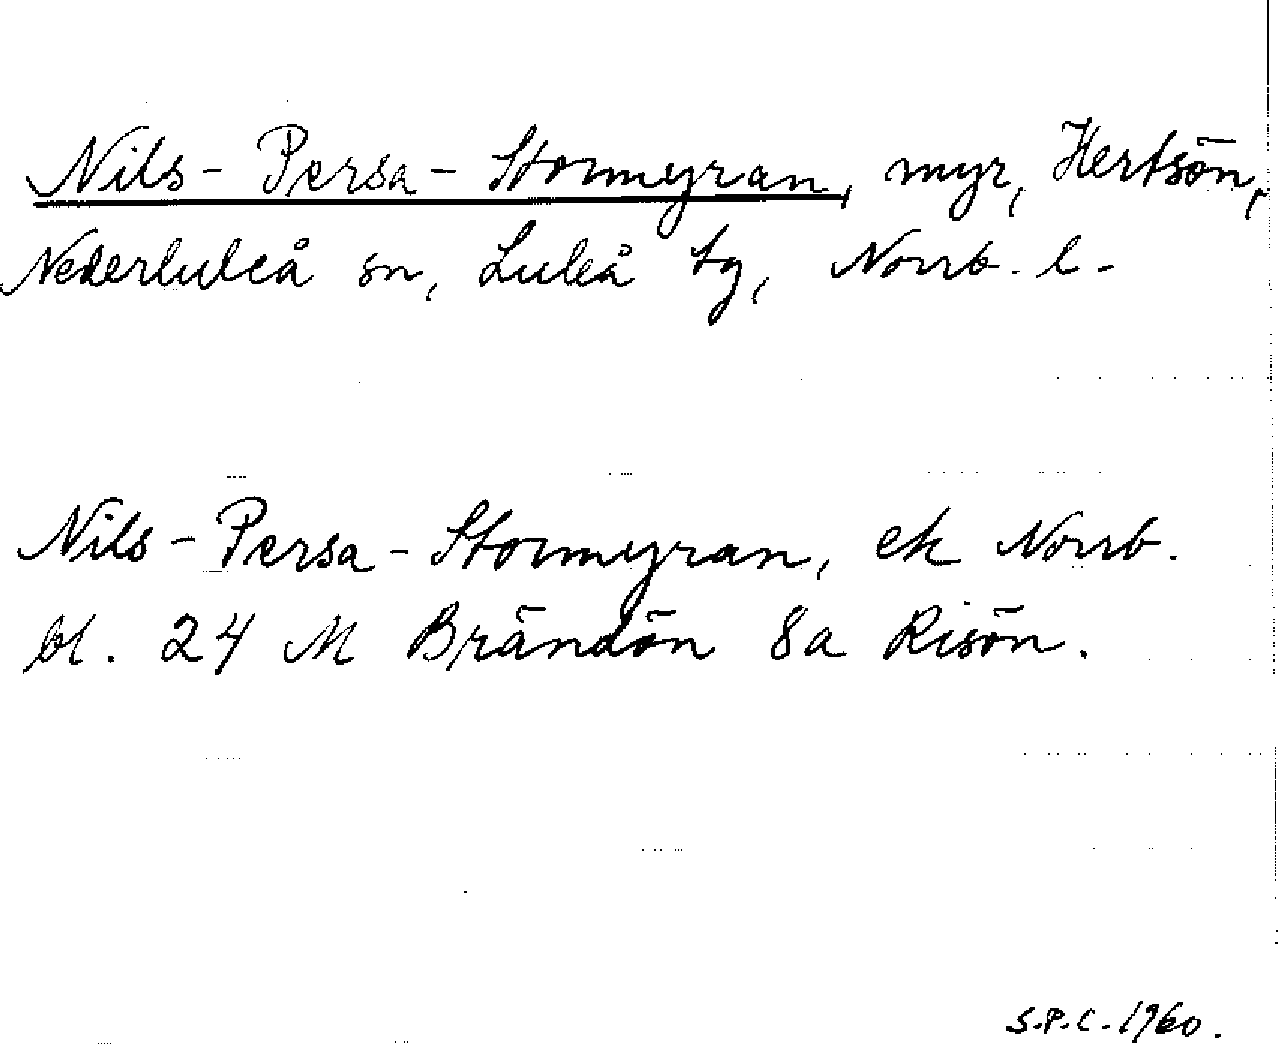 Nils-Persa-Stormyran, myr, Hertsön,
Nederluleå sn, Luleå tg, Norrb. l.
Nils-Persa-Stormyran, ek Norrb.
bl. 24 M Brändön 8a Risön.
S.P.C. 1960.